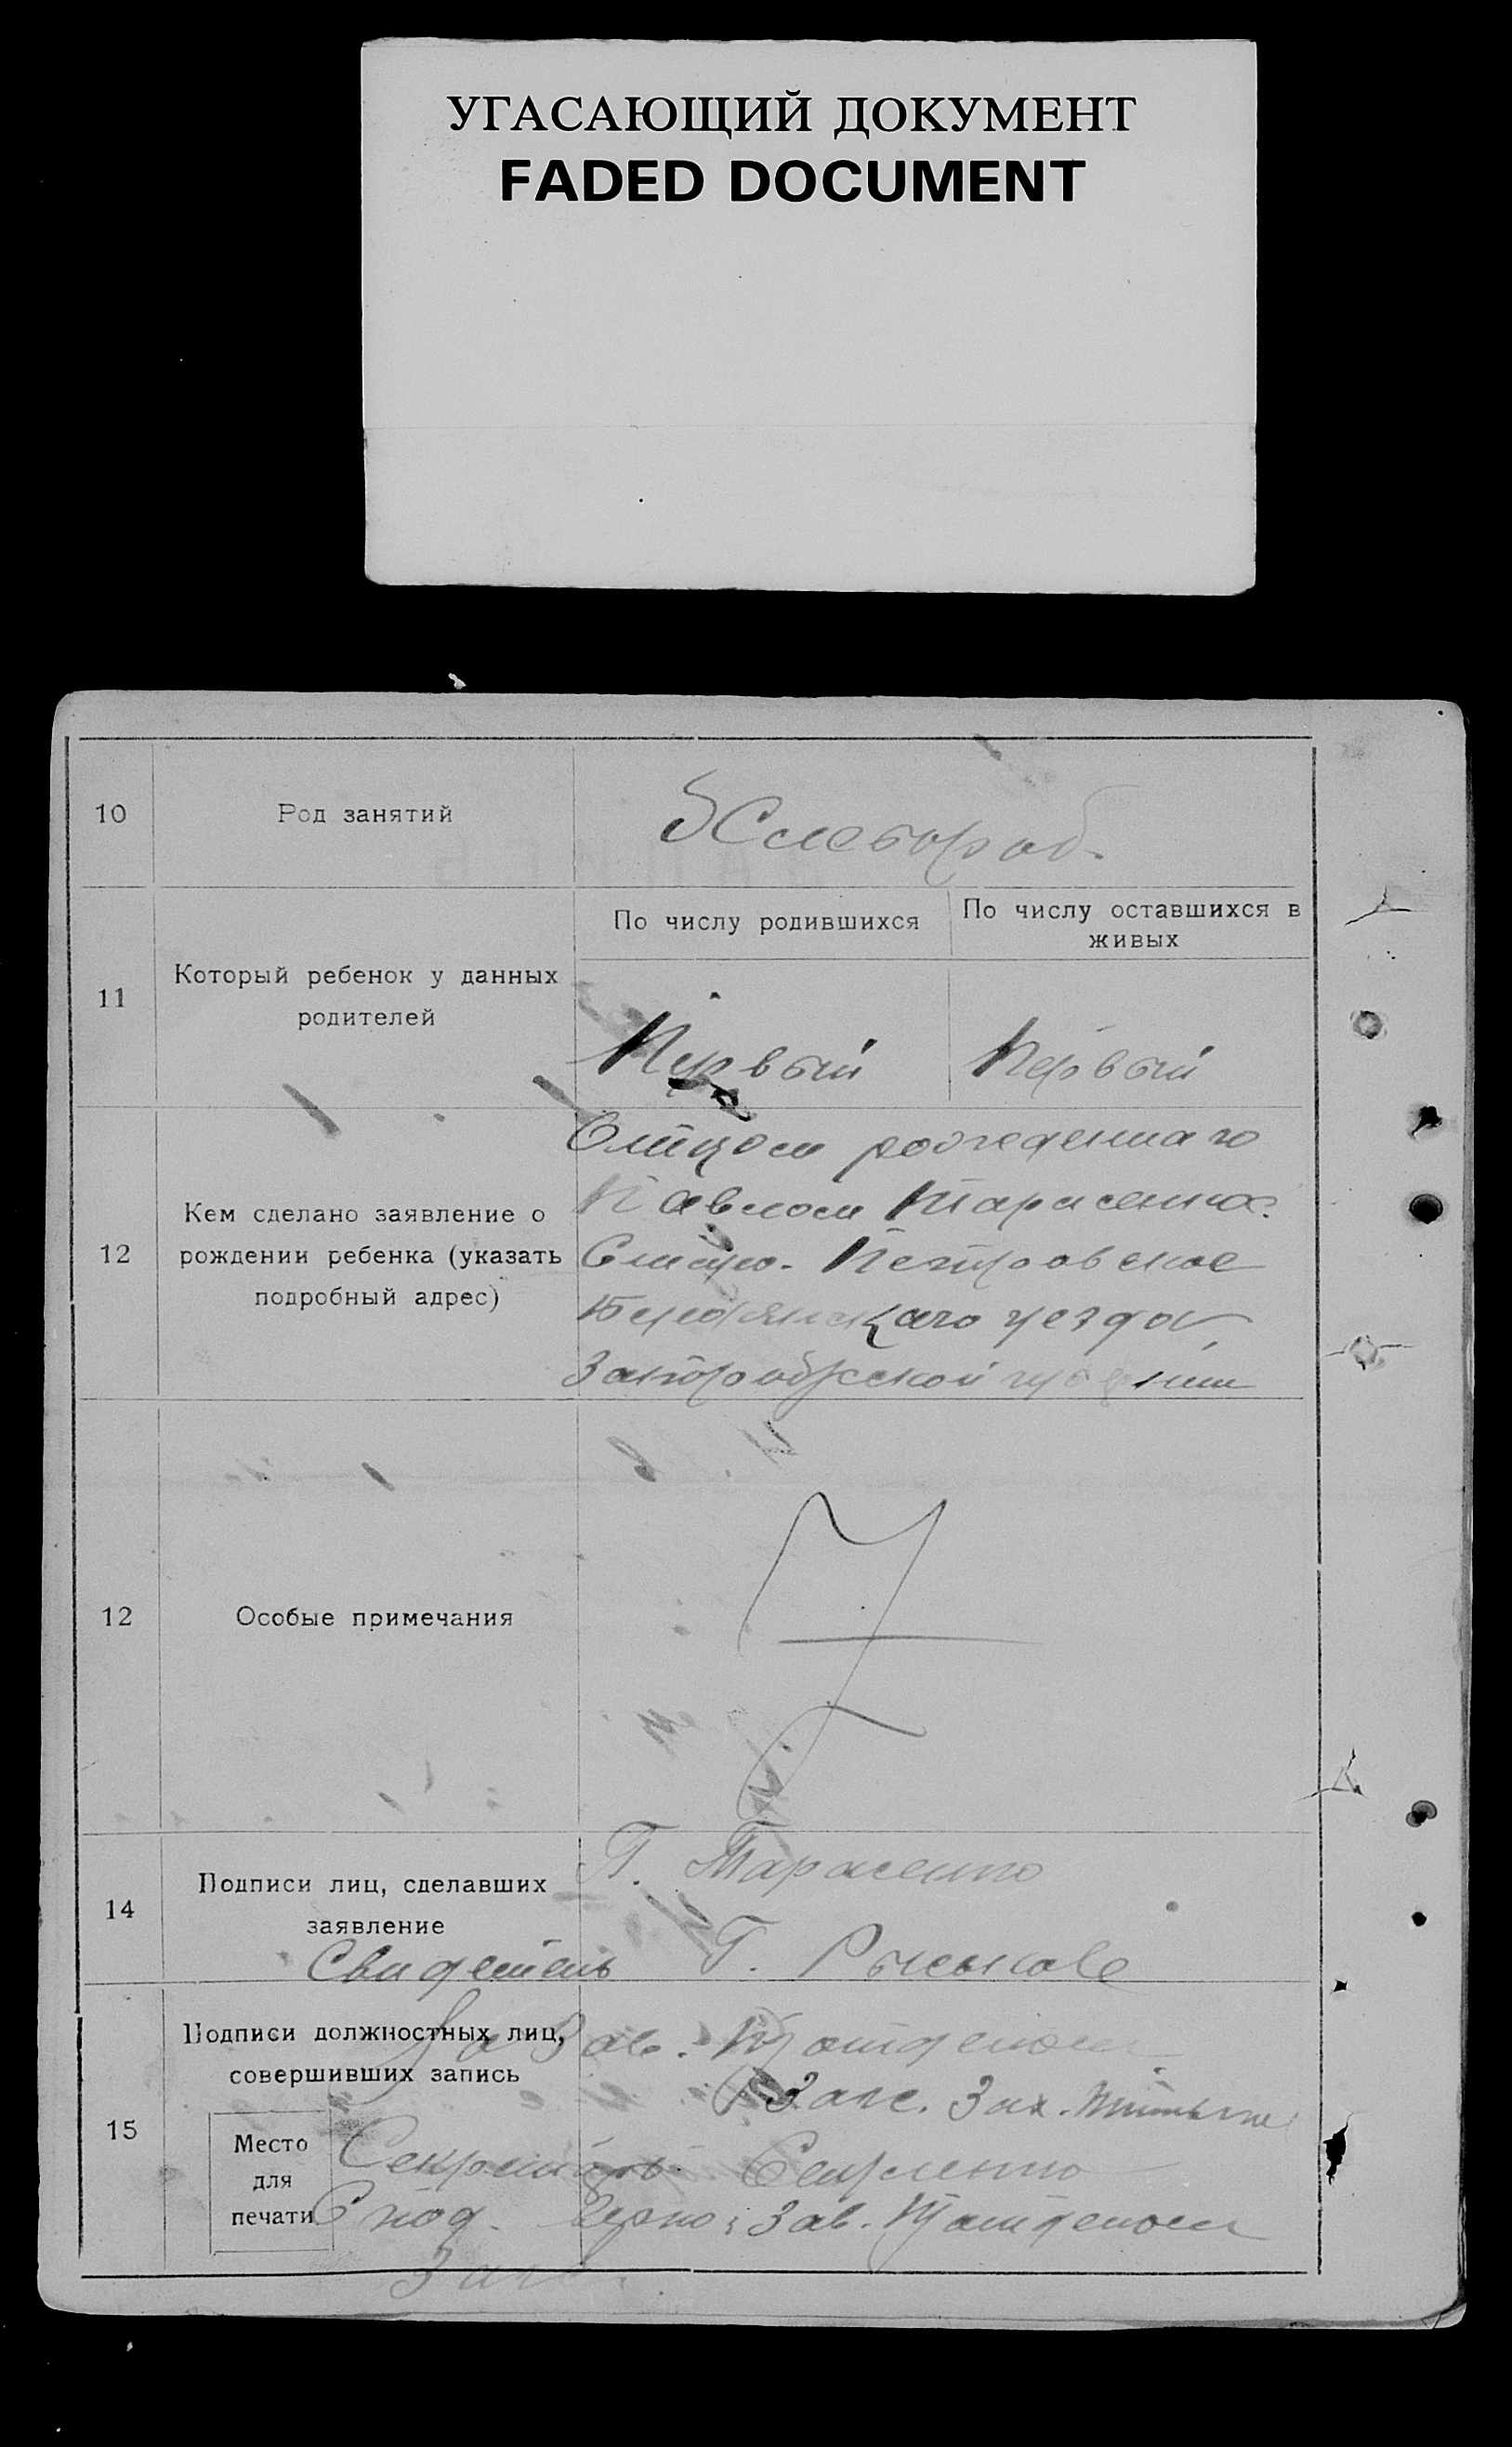 УГАСАЮЩИЙ ДОКУМЕНТ
FADED DOCUMENT
10
Род занятий
Хлебороб.
11
Который ребенок у данных
родителей
По числу родившихся
По числу оставшихся в
живых
Первый
Первый
12
Кем сделано заявление о
рождении ребенка (указать
подробный адрес)
Отцом рожденнаго
Павлом Тарасенко.
Петровское
Бердянскаго уезда
12
Особые примечания
14
Подписи лиц, сделавших
заявление
П. Тарасенко
Свидетель Г.
15
Подписи должностных лиц,
совершивших запись
Место
для
печати
За Зав. Подотделом
Загс.
Секретарь
С под. верно: Зав. Подотделом
Загс.